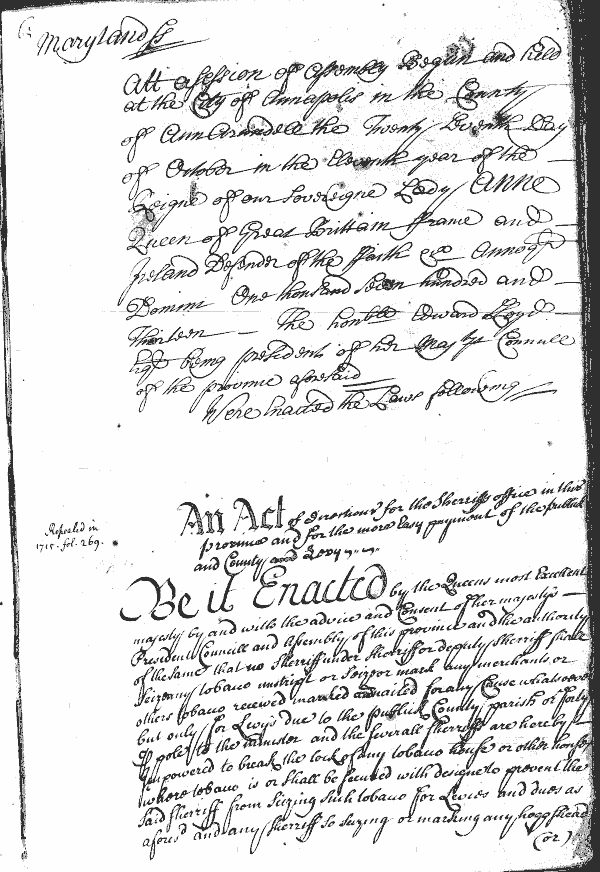 Maryland ss
Att a session of Assembly Begun and held
at the City of Annapolis in the County
of Ann Arundell the Twenty Seventh Day
of October in the Eleventh year of the
Reigne of our Sovereigne Lady Anne
Queen of Great Brittain ffrance and
Ireland Defender of the ffaith &c Annoq
Domini One thousand Seven hundred and
Thirteen The honble Edward Lloyd
Esqr being president of her Majtys Councill
of the province aforesaid
Were Enacted the Laws following
Repealed in
1715. fol. 269.
An Act of directions for the Sherriffs office in this
province and for the more Easy payment of the publick
and County Levy
Be it Enacted by the Queens most Excellent
majesty by and with the advice and Consent of her majestys
President Councill and Assembly of this province and the authority
of the same that no Sherriff under Sherriff or deputy Sherriff shall
Seize any tobacco unstript or Seize or mark any merchants or
others tobacco received marked and nailed for any Cause whatsoever
but only for Levys due to the publick County parish or forty
p pole to the minister and the severall Sherriffs are hereby
Impowered to break the lock of any tobacco house or other house
where tobacco is or shall be secured with designe to prevent the
said sherriff from Seizing such tobacco for Levies and dues as
aforesd and any sherriff so seizing or marking any hoggshead
(or)